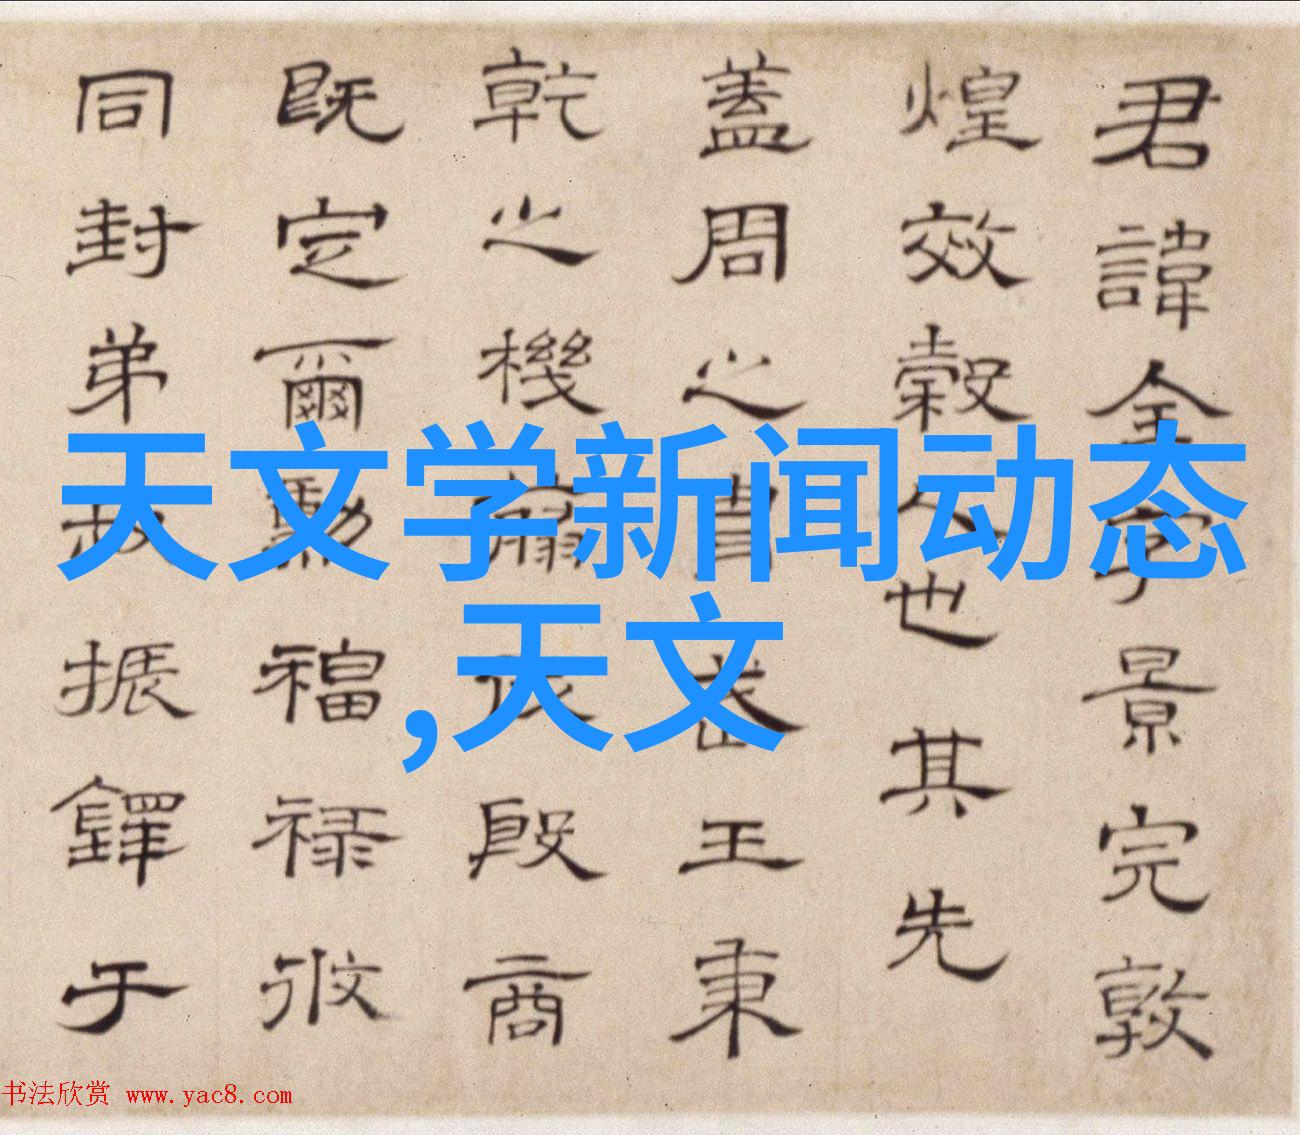 君諱全字景完敦
煌效穀人也其先
蓋周之胄武王秉
乾之機翦伐殷商
既定爾勳福祿攸
同封弟叔振鐸于
天文学新闻动态
,天文
书法欣赏 www.yac8.com